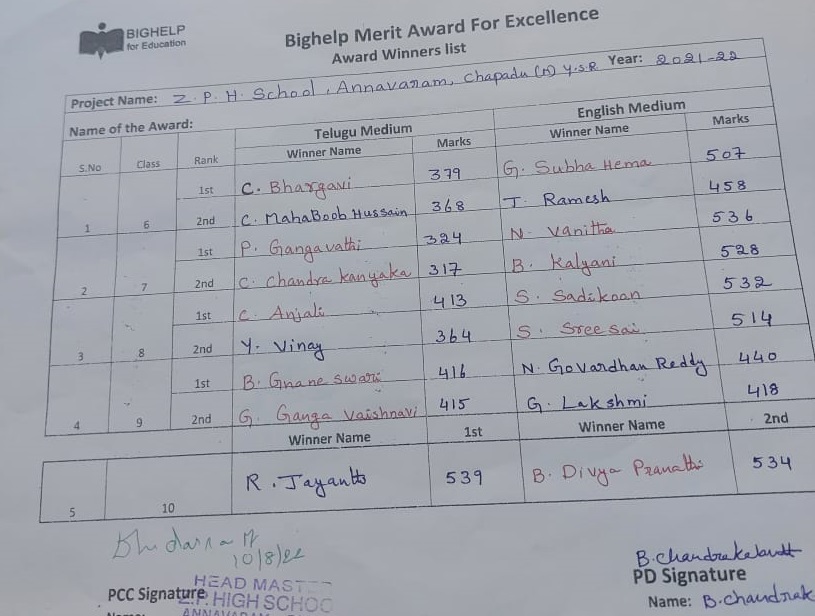 BIGHELP
for Education
Bighelp Merit Award For Excellence
Award Winners list
Project Name: Z. P. H. School, Annavaram, Chapadu (M) Y.S.R Year: 2021-22
Name of the Award: Telugu Medium English Medium
S.No Class Rank Winner Name Marks Winner Name Marks
1st C. Bhargavi 379 G. Subha Hema 507
1 6 2nd C. MahaBoob Hussain 368 J. Ramesh 458
1st P. Gangavathi 324 N. Vanitha 536
2 7 2nd C. Chandra kanyaka 317 B. Kalyani 528
1st C. Anjali 413 S. Sadikoan 532
3 8 2nd Y. Vinay 364 S. Sree sai 514
1st B. Gnane swari 416 N. Govardhan Reddy 440
4 9 2nd G. Ganga Vaishnavi 415 G. Lakshmi 418
Winner Name 1st Winner Name 2nd
5 10 R. Jayanth 539 B. Divya Pranathi 534
10/8/22
PCC Signature
HEAD MAST
Z.P. HIGH SCHOO
PD Signature
Name: